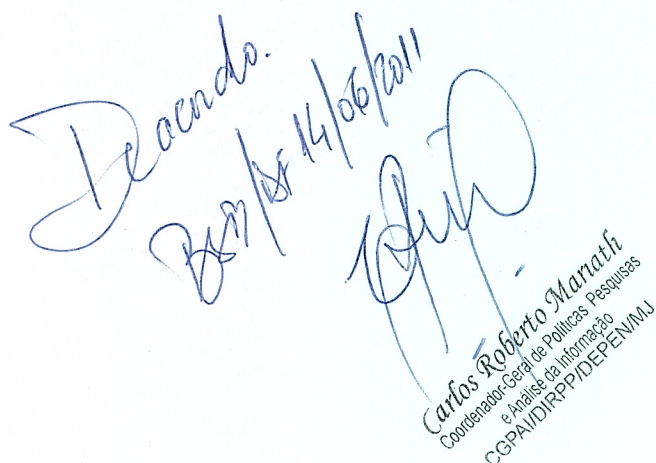 De acordo.
BSB/DF 14/06/2011
Carlos Roberto Mariath
Coordenador-Geral de Políticas, Pesquisas
e Análise da Informação
CGPAI/DIRPP/DEPEN/MJ